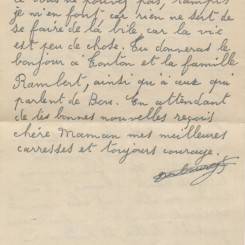 si vous ne pouvez pas, tampis
je m'en fout car rien ne sert de
se faire de la bile car la vie
est peu de chose. Tu donneras le
bonjour à Tonton et la famille
Rambert, ainsi qu'à ceux qui
parlent de Bou. En attendant
de tes bonnes nouvelles reçois
chère Maman mes meilleures
carresses et toujours courage.